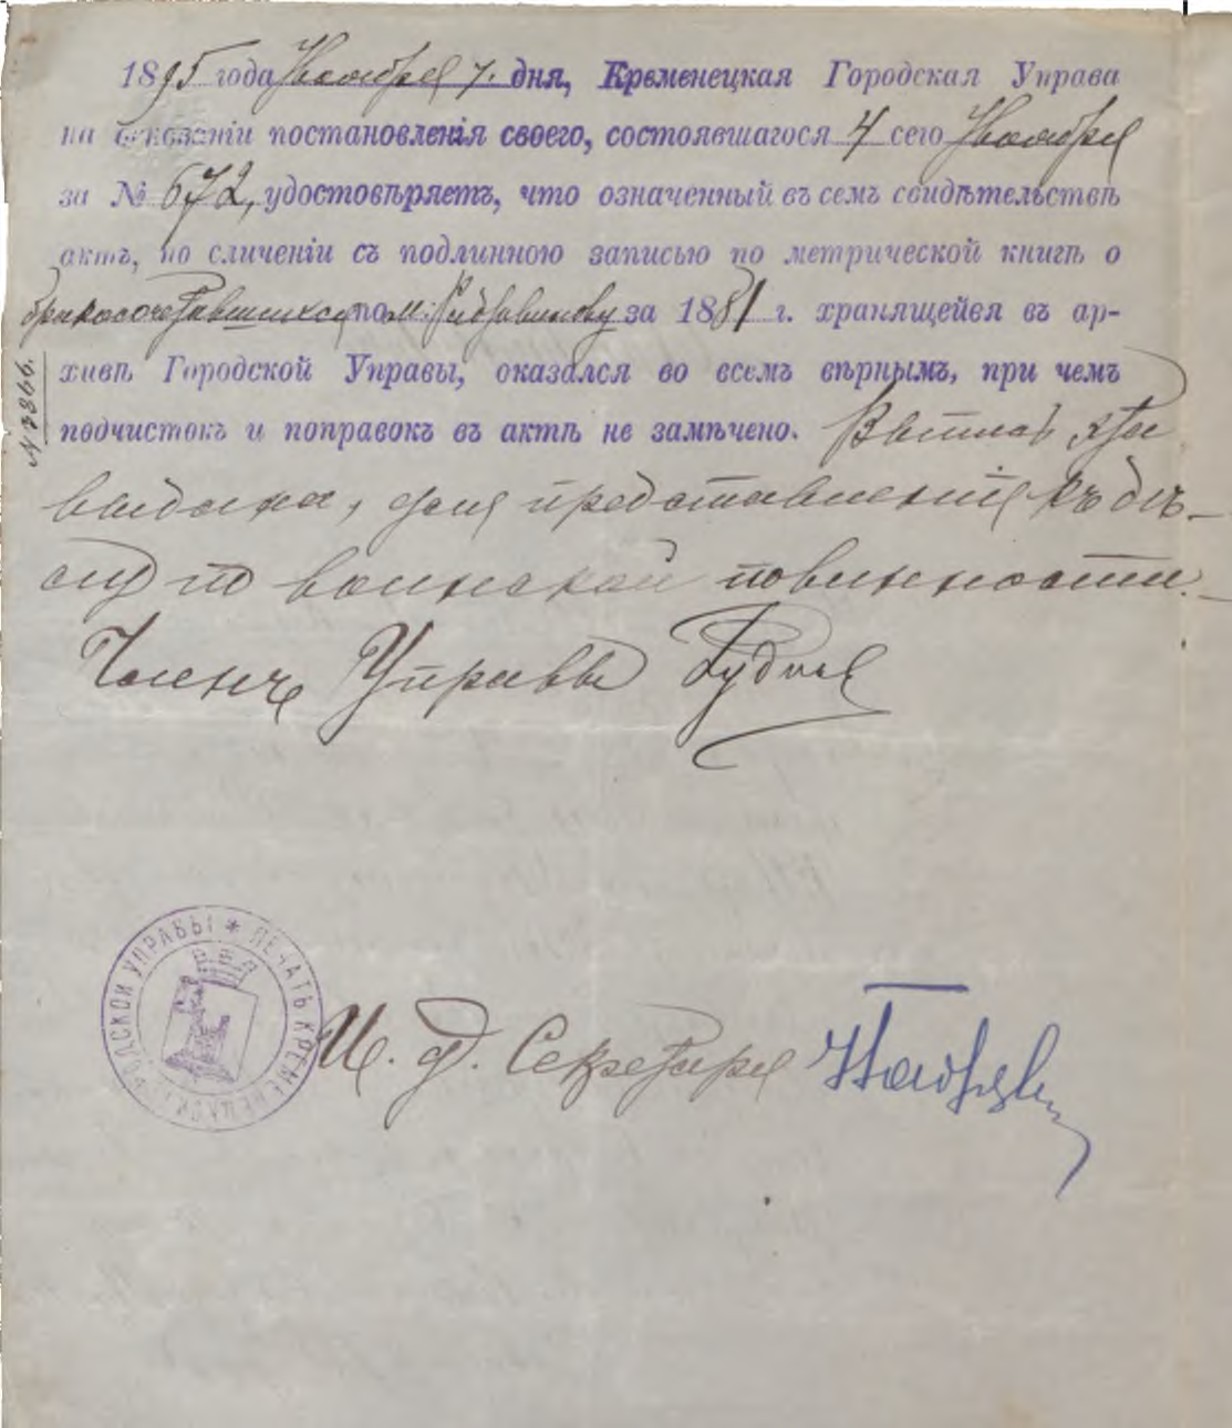 1895 года Ноября 7. дня, Кременецкая Городская Управа
на основаніи постановленія своего, состоявшагося 4 сего Ноября
за № 672, удостовѣряетъ, что означенный въ семъ свидѣтельствѣ
актъ, по сличеніи съ подлинною записью по метрической книгѣ о
бракосочетавшихся по м: за 1881 г. хранящейся въ ар-
хивѣ Городской Управы, оказался во всемъ вѣрнымъ, при чемъ
подчистокъ и поправокъ въ актѣ не замѣчено.
выдана, для представленія къ дѣ-
лу по воинской повинности.
Членъ Управы
И. д. Секретаря
№ 3866.
ПЕЧАТЬ КРЕМЕНЕЦКОЙ ГОРОДСКОЙ УПРАВЫ *